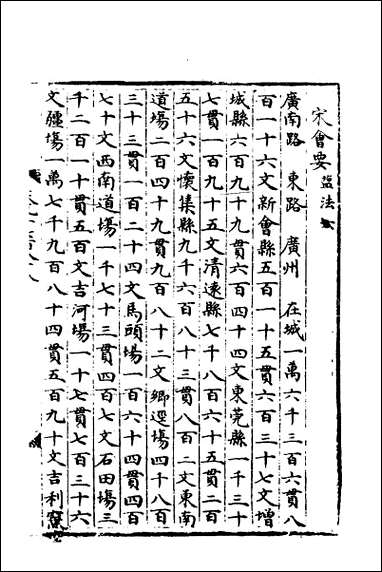 宋會要 鹽法
廣南路 東路 廣州 在城一萬六千三百六貫八
百一十六文新會縣五百一十五貫六百三十七文增
城縣六百九十九貫六百四十四文東莞縣一千三十
七貫一百九十五文清遠縣七千八百六十五貫二百
五十六文懷集縣九千六百八十三貫八百二文東南
道場二百四十九貫九百八十二文鄉逕場四千八百
三十三貫一百二十四文馬頭場一百六十四貫四百
七十文西南道場一千七十三貫四百七文石田場三
千二百一十貫五百文吉河場一十七貫七百三十六
文疆場一萬七千九百八十四貫五百九十文吉利窠